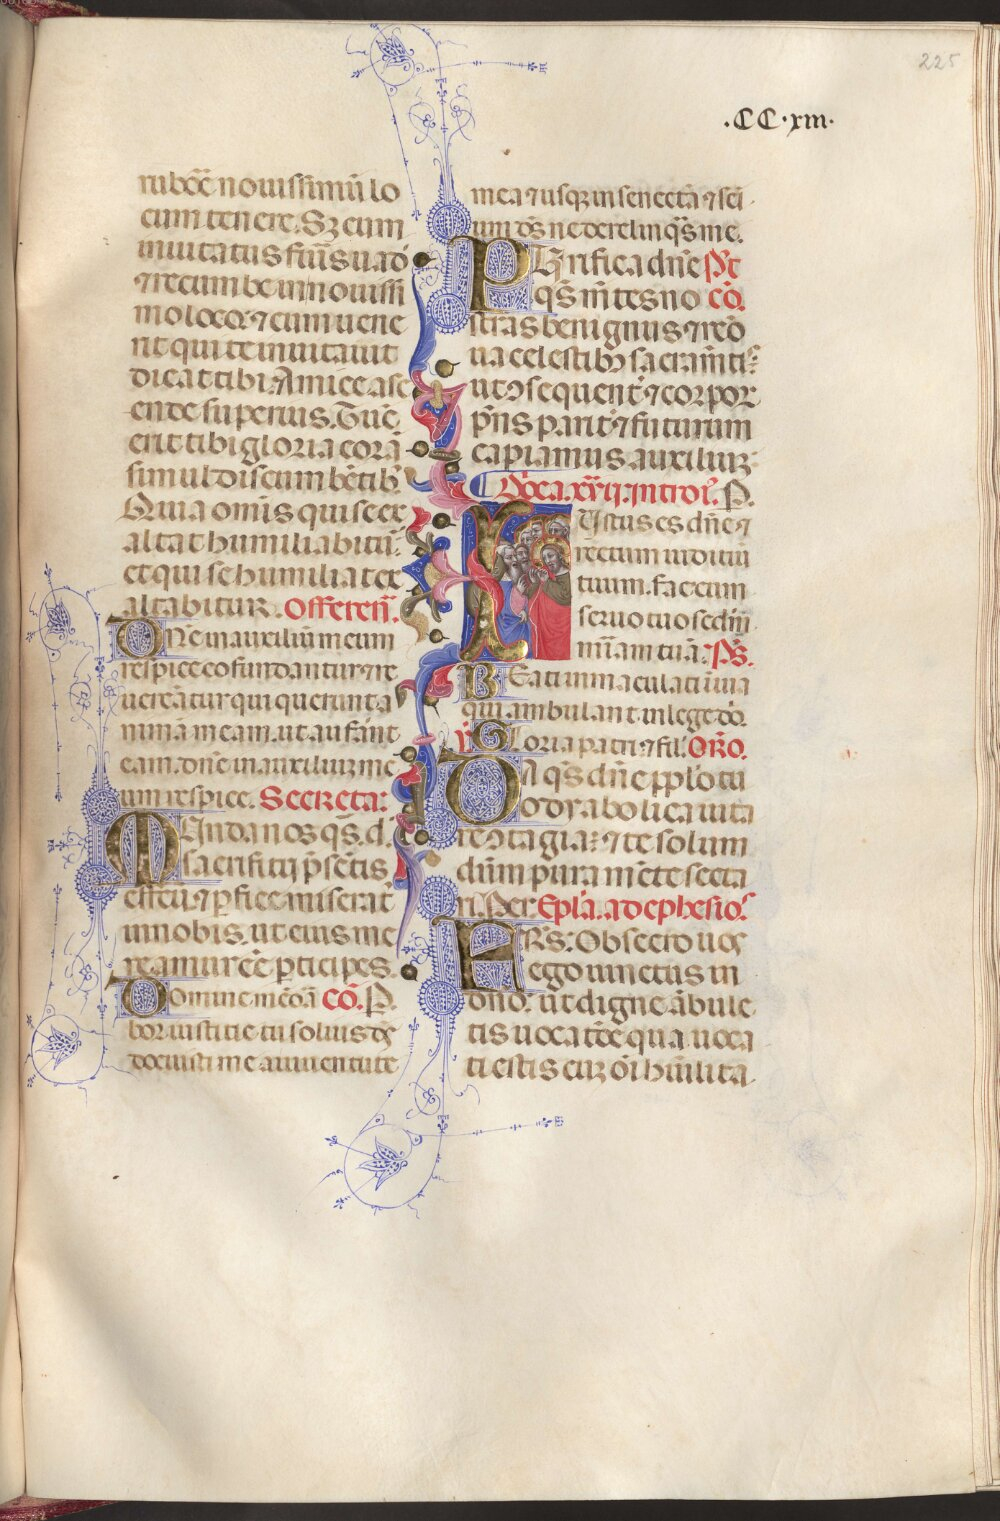 225
.CC.xiii.
rubeẽ nouissimũ lo
cum tenere. Sʒ cum
inuitatus fuĩs uadó
⁊ recumbe in nouissi
mo loco. ⁊ cum uene
rit qui te inuitauit
dicat tibi. Amice asc
ende superius. Tũc
erit tibi gloria corã
simul discumbẽtib᷒
Quia omĩs qui se ex
altat humiliabitũ.
et qui se humiliat ex
altabitur. Offereñ.
Dñe in auxiliũ meum
respice cõfundantur ⁊ re
uereãtur qui querunt a
nimã meam. ut aufãnt
eam. dñe in auxiliuʒ me
um respice. Secreta:
Munda nos qs̃. d.
sacrifitij p̃sẽtis
effectu. ⁊ ꝑfice miserat᷒
in nobis. ut eius me
reamur eẽ ꝑticipes.
Domine mẽoã cõ. P.
bor iustitie tu solius ds̃
docuisti me a iuuentute
mea ⁊ usqʒ in senectã ⁊ sei
um ds̃ ne derelinqs̃ me.
Purifica dñe Pt
qs̃ mẽtes no cõ.
stras benignus ⁊ reõ
ua celestibʒ sacramẽtis
ut ↄsequent᷒ ⁊ corpor
p̃ns parit᷒ ⁊ futurum
capiamus auxiliuʒ.
Dõca. xvij. introi. P.
Iustus es dñe ⁊
rectum iuditiũ
tuum. fac cum
seruo tuo sedm̃
mĩam tuã. Ps̃.
Beati immaculati ĩ uia
qui ambulant in lege dõ.
℣ Gloria patri ⁊ fil. Orõ.
Da qs̃ dñe pplo tu
o dyabolica uita
re ↄtagia: ⁊ te solum
dũm pura mẽte secta
ri. Per. Epl̃a. ad ephesios.
Frs̃: Obsecro uos
ego uinctus in
dño. ut digne ãbule
tis uocatõe qua uoca
ti estis cuʒ oĩ humilita